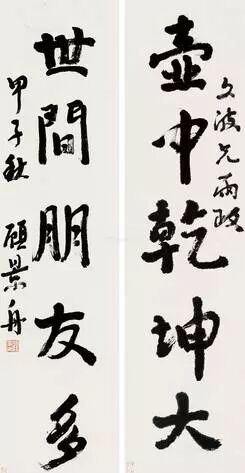 壺中乾坤大
文波兄兩政
世間朋友多
甲子秋
顧景舟